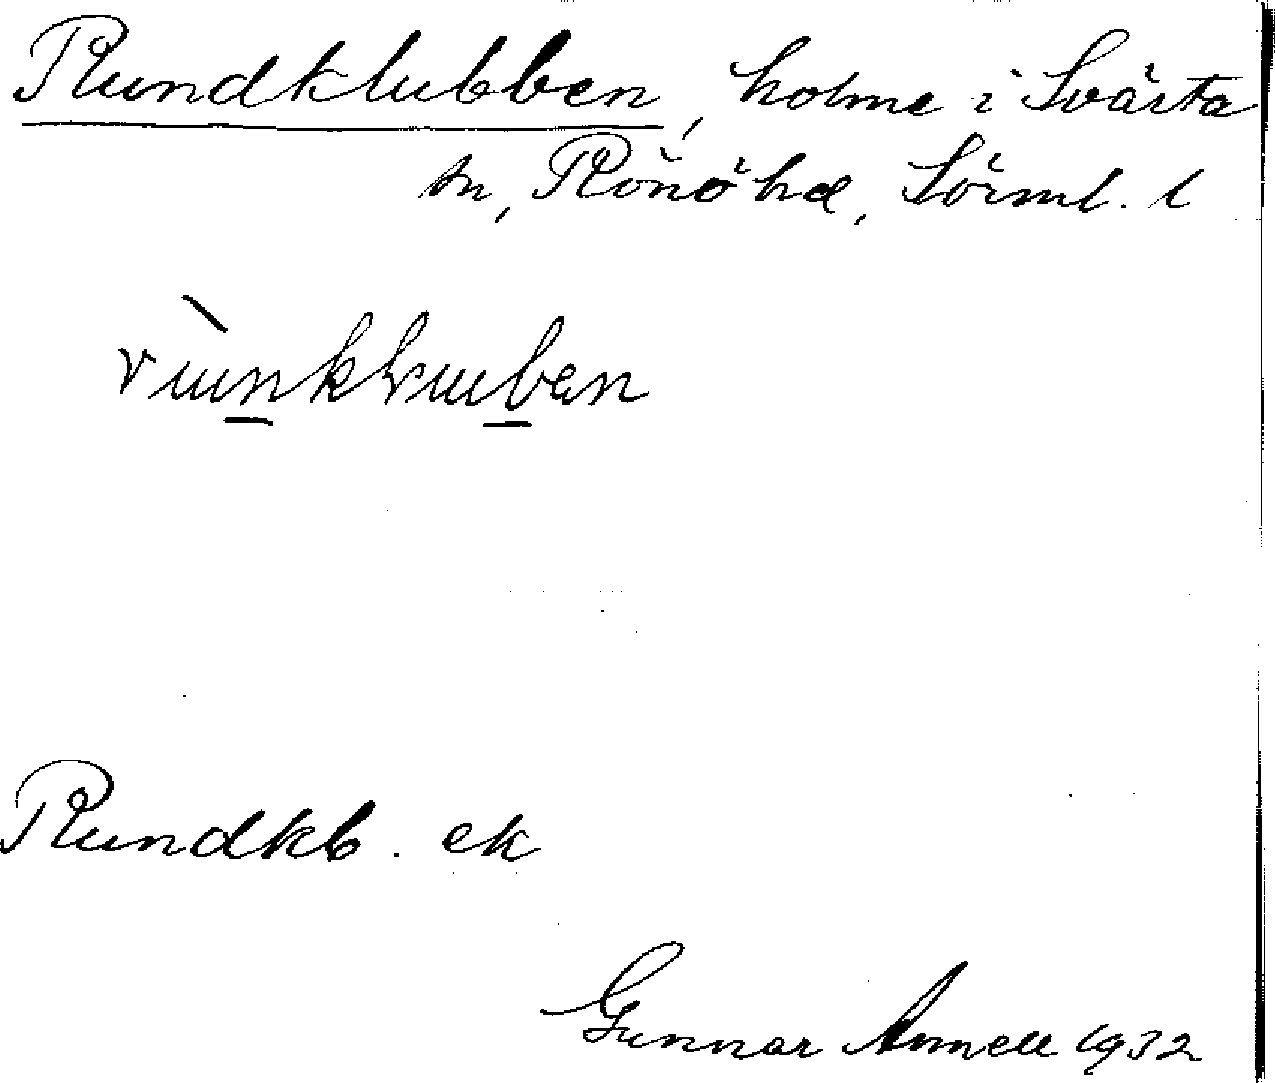 Rundklubben, holme i Svärta
sn, Rönö hd, Sörml. l
Rundkb. ek
Gunnar Annell 1932